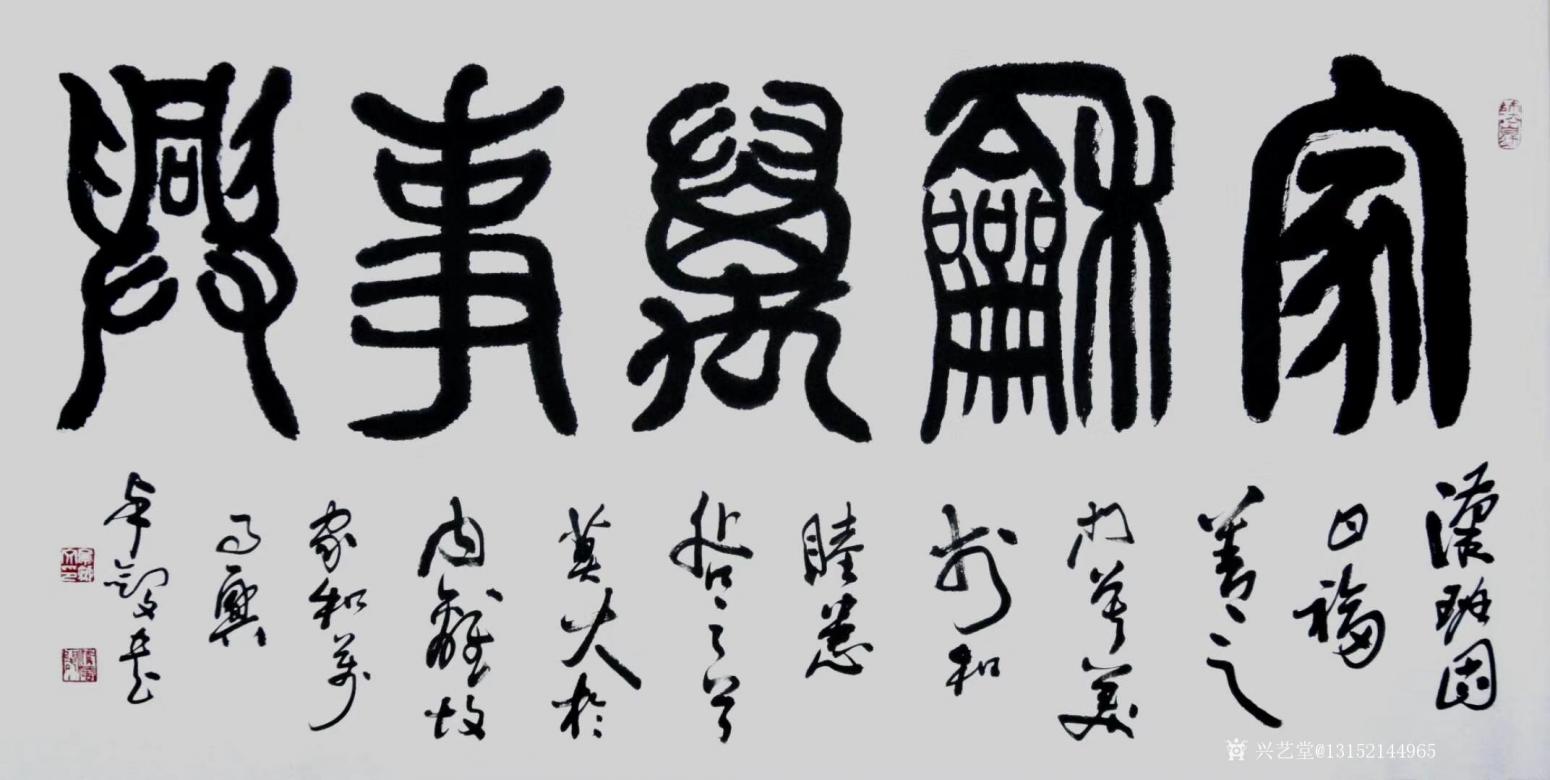 家龢萬事興
漢班固
曰福
善之
門莫美
於和
睦患
咎之首
莫大於
内離故
家和萬
事興
兴艺堂@13152144965